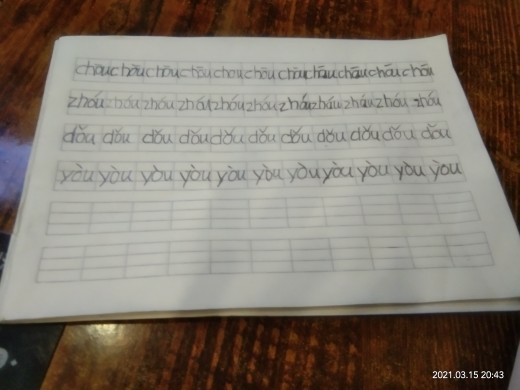 chōu chōu chōu chōu chōu chōu chōu chōu chōu chōu chōu
zhóu zhóu zhóu zhóu zhóu zhóu zhóu zhóu zhóu zhóu zhóu
dǒu dǒu dǒu dǒu dǒu dǒu dǒu dǒu dǒu dǒu dǒu
yòu yòu yòu yòu yòu yòu yòu yòu yòu yòu yòu
2021.03.15 20:43